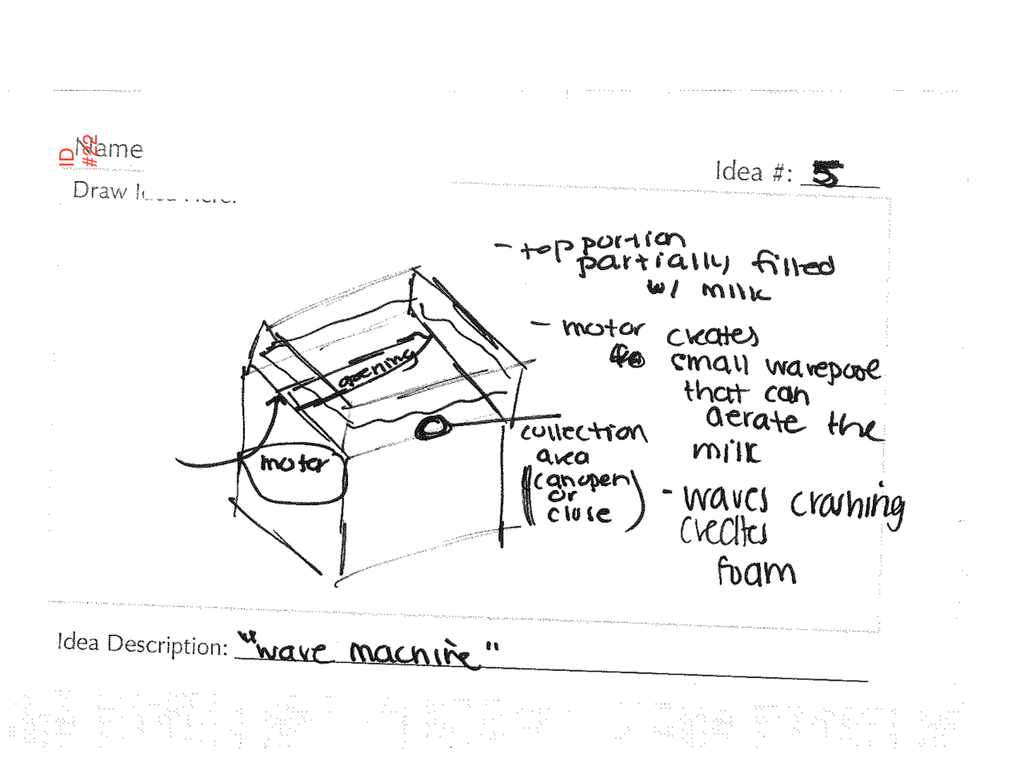 ID
#22
Name
Idea #: 5
Draw Idea Here:
- top portion
partially filled
w/ milk
- motor creates
small wavepool
that can
aerate the
milk
- waves crashing
creates
foam
opening
motor
collection
area
(can open
or
close)
Idea Description: "wave machine"